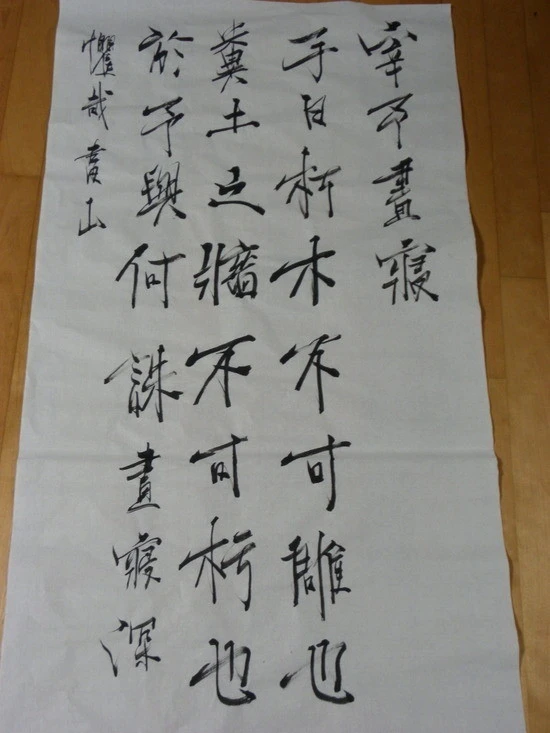 宰予晝寢
子曰朽木不可雕也
糞土之牆不可杇也
於予與何誅晝寢深
懼哉書山